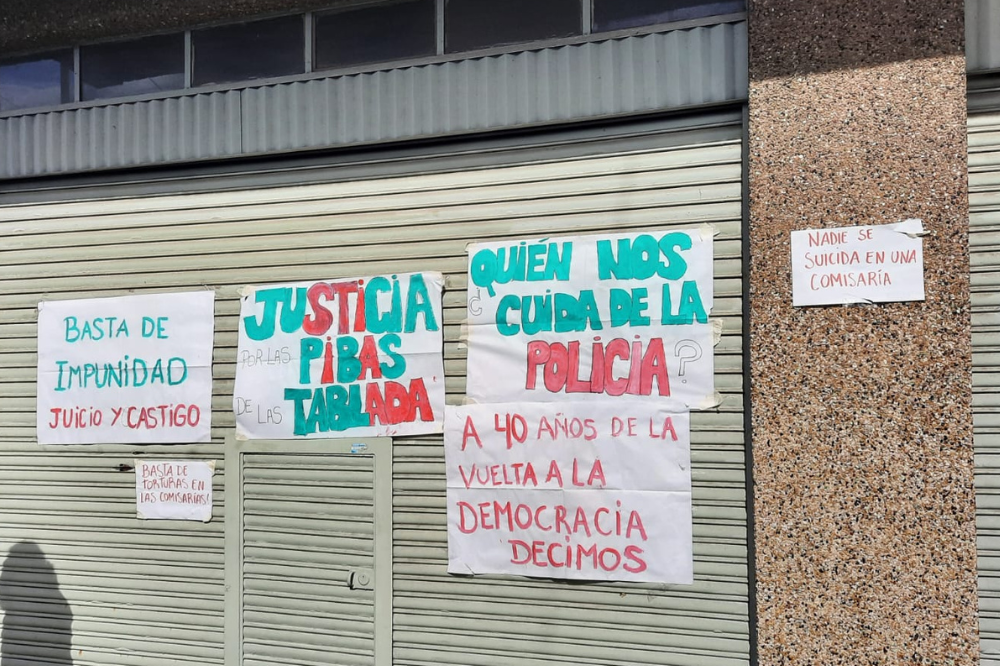 BASTA DE
IMPUNIDAD
JUICIO Y CASTIGO
BASTA DE
TORTURAS EN
LAS COMISARÍAS!
JUSTICIA
POR LAS PIBAS
DE LAS TABLADA
¿QUIÉN NOS
CUIDA DE LA
POLICÍA?
A 40 AÑOS DE LA
VUELTA A LA
DEMOCRACIA
DECIMOS
NADIE SE
SUICIDA EN UNA
COMISARÍA